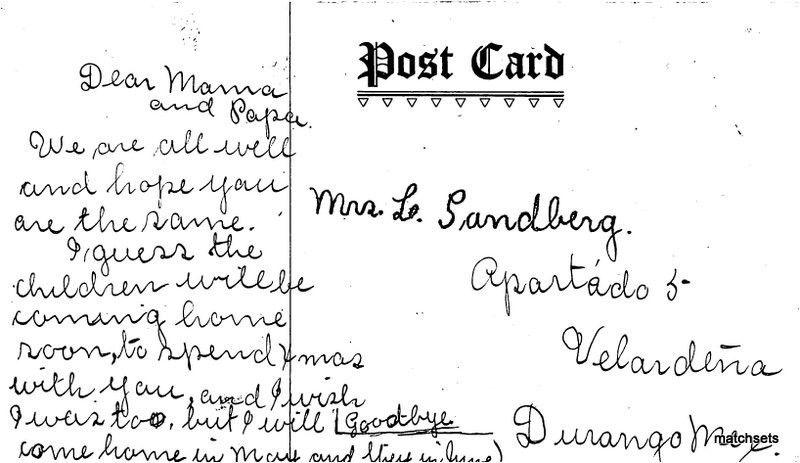 Dear Mama
and Papa.
We are all well
and hope you
are the same.
I guess the
children will be
coming home
soon, to spend Xmas
with you, and I wish
I was too, but I will
come home in May and stay in June)
Goodbye
Post Card
Mrs. L. Sandberg.
Apartádo 5-
Velardeña
Durango Mex.
matchsets